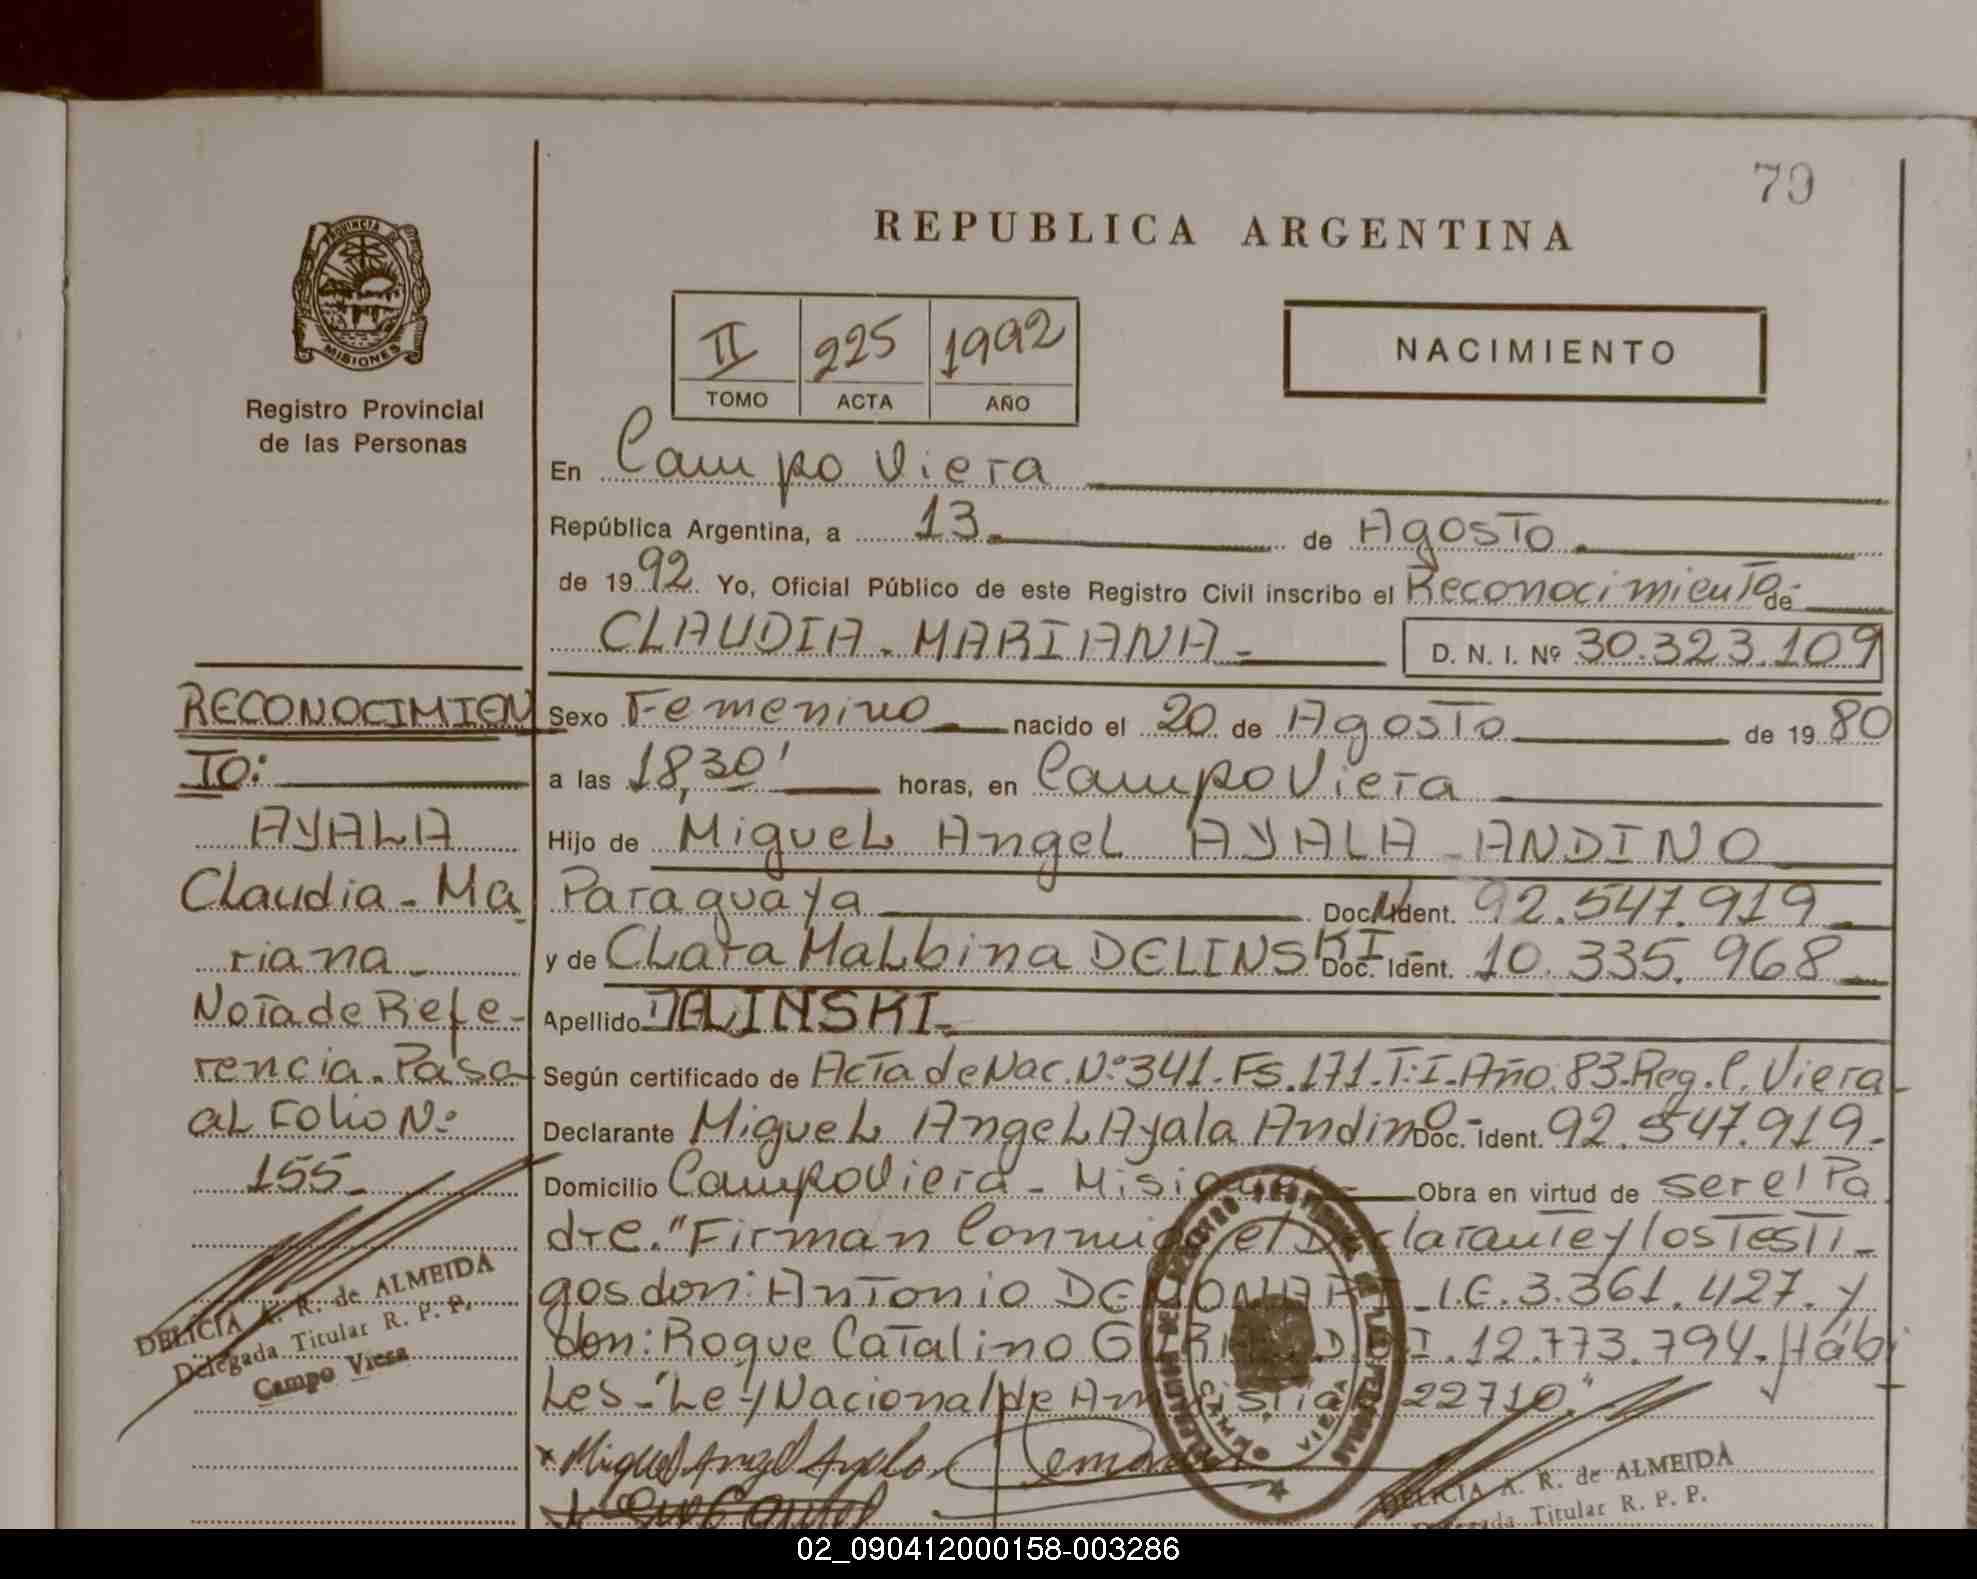 79
REPUBLICA ARGENTINA
PROVINCIA DE
MISIONES
Registro Provincial
de las Personas
II 225 1992
TOMO ACTA AÑO
NACIMIENTO
En Campo Viera
República Argentina, a 13 de Agosto
de 1992. Yo, Oficial Público de este Registro Civil inscribo el Reconocimiento de
CLAUDIA - MARIANA - D. N. I. Nº 30.323.109
Sexo Femenino nacido el 20 de Agosto de 1980
a las 18,30' horas, en Campo Viera
Hijo de Miguel Angel AYALA - ANDINO
Paraguaya Doc. Ident. 92.547.919
y de Clara Malbina DELINSKI - Doc. Ident. 10.335.968
Apellido DELINSKI -
Según certificado de Acta de Nac. Nº 341 - Fs. 171 - T: I - Año: 83 - Reg. C. Viera -
Declarante Miguel Angel Ayala Andino - Doc. Ident. 92.547.919 -
Domicilio Campo Viera - Misiones - Obra en virtud de ser el Pa
dre. "Firman Conmigo el Declarante y los Testi -
gos don: Antonio - I.E. 3.361.427. y
don: Roque Catalino D.N.I. 12.773.794. Hábi
les - "Ley Nacional de Amnistia 22710."
RECONOCIMIEN
TO:
AYALA
Claudia - Ma
riana -
Nota de Refe -
rencia - Pasa
al Folio Nº
155 -
DELICIA A. R. de ALMEIDA
Delegada Titular R. P. P.
Campo Viera
Miguel Angel Ayala
CAMPO VIERA
DELICIA A. R. de ALMEIDA
Delegada Titular R. P. P.
02_090412000158-003286